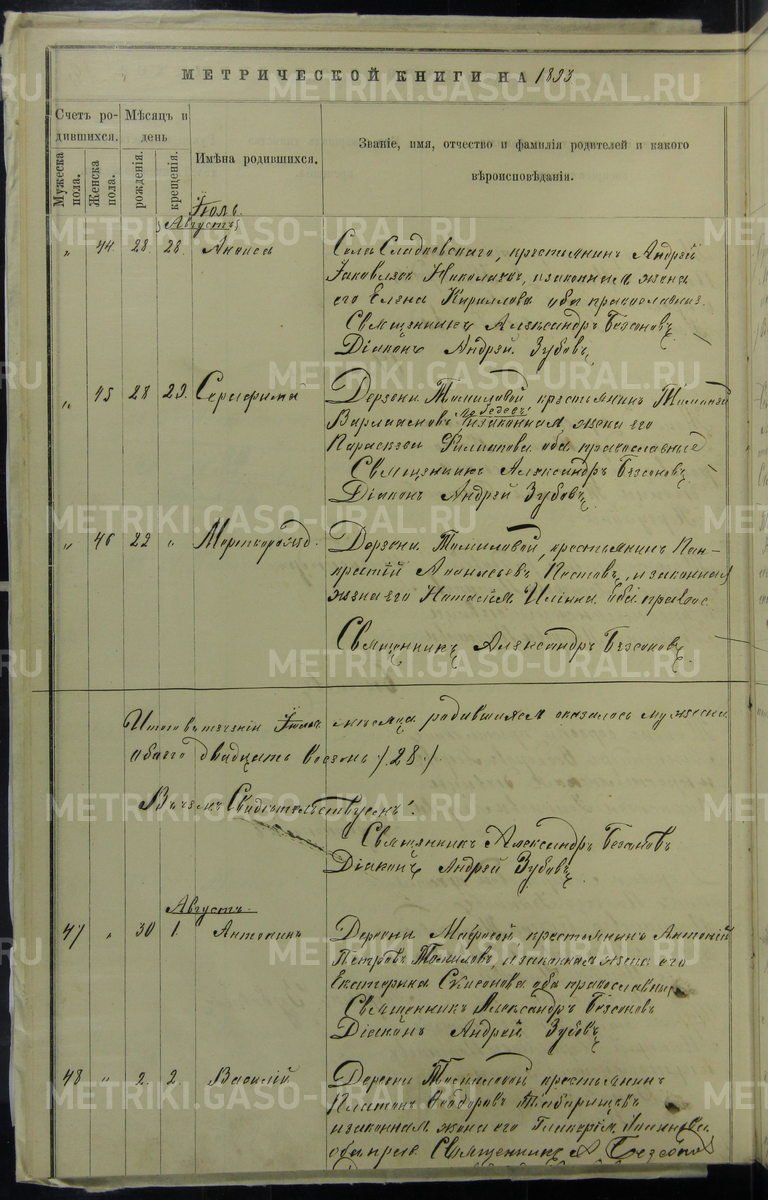 МЕТРИЧЕСКОЙ КНИГИ НА 1893
Счетъ родившихся.
Мѣсяцъ и день
Имѣна родившихся.
Званіе, имя, отчество и фамилія родителей и какого вѣроисповѣданія.
Мужеска пола.
Женска пола.
рожденія.
крещенія.
Іюль.
Августъ
" 44 28 28 Анфиса
Села Сладковскаго, крестьянинъ Андрей
Іаковлевъ законная жена
его Елена Кириллова оба православные.
Священникъ Александръ Безсоновъ
Діаконъ Андрей Зубовъ
" 45 28 29. Серафима
Деревни Томиловой крестьянинъ
Варлаамовъ и законная жена его
Параскева Филиппова оба православные
Священникъ Александръ Безсоновъ
Діаконъ Андрей Зубовъ
" 46 22 " Мертворожд.
Деревни Томиловой, крестьянинъ Пан-
кратій Постовъ, и законная
жена его Наталія Ильина оба правос
Священникъ Александръ Безсоновъ
Итого въ теченіи Іюля мѣсяца родившихся оказалось мужеска
обоего двадцать восемь /28/
Въ чемъ Свидѣтельствуемъ:
Священникъ Александръ Безсоновъ
Діаконъ Андрей Зубовъ
Августъ.
47 " 30 1. Антонинъ
Деревни крестьянинъ Антоній
Петровъ Томиловъ, и законная жена его
Екатерина оба православные
Священникъ Александръ Безсоновъ
Діаконъ Андрей Зубовъ
48 " 2. 2. Василій
Деревни Томиловой крестьянинъ
Платонъ Ѳеодоровъ
и законная жена его
оба прав. Священникъ А Безсоновъ
METRIKI.GASO-URAL.RU